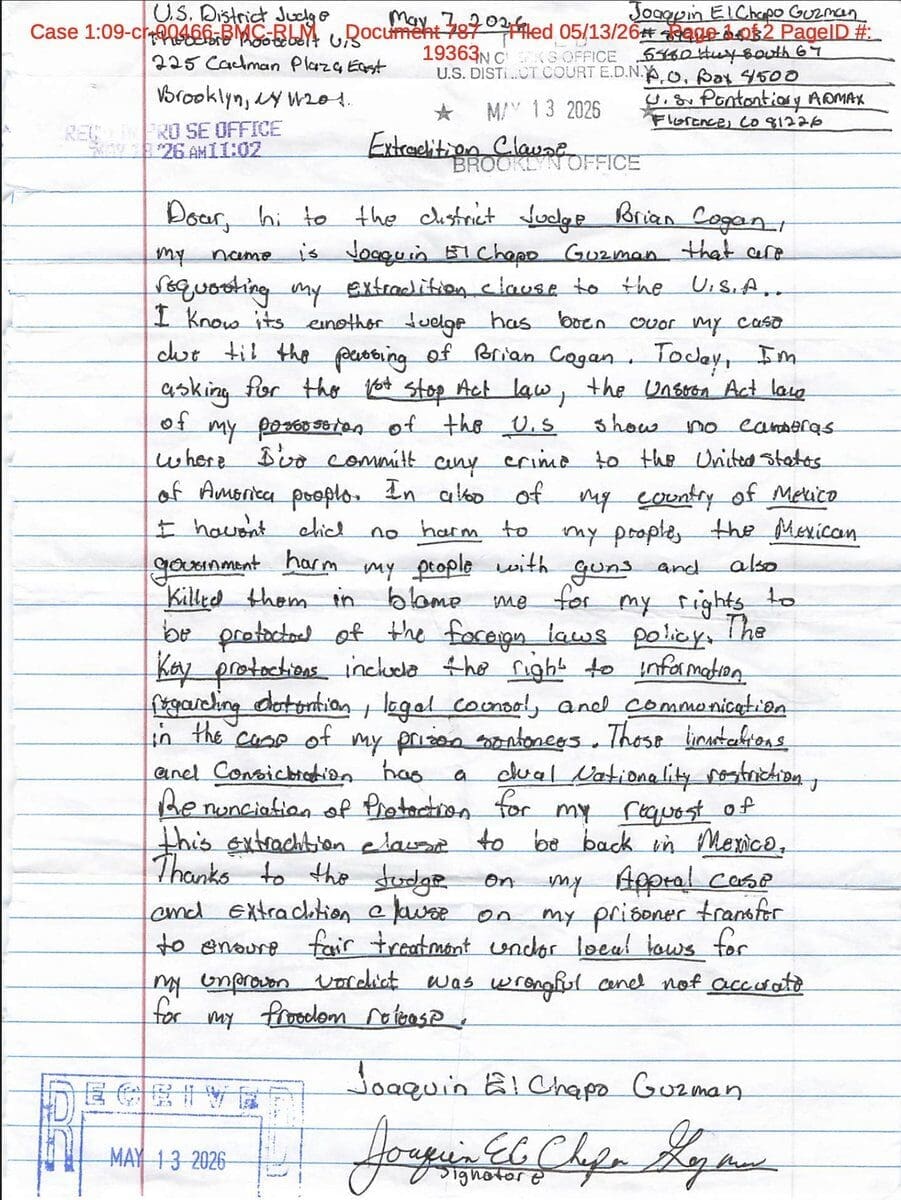 U.S. District Judge
May 7, 2026
Joaquin El Chapo Guzman
Case 1:09-cr-00466-BMC-RLM Document 787 Filed 05/13/26 Page 1 of 2 PageID #:
19363
Theodore Roosevelt U.S
225 Cadman Plaza East
Brooklyn, NY
5880 Hwy South 67
P.O. Box 8500
U.S. Pentontiary ADMAX
Florence, CO 81226
IN C OFFICE
U.S. DIST CT COURT E.D.N.Y.
★ MAY 13 2026 ★
BROOKLYN OFFICE
PRO SE OFFICE
'26 AM 11:02
Extradition Clause
Dear, hi to the district Judge Brian Cogan,
my name is Joaquin El Chapo Guzman that are
requesting my extradition clause to the U.S.A..
I know its another Judge has been over my case
due til the passing of Brian Cogan. Today, Im
asking for the 1st Stop Act law, the Unseen Act law
of my possession of the U.S show no cameras
where I've committ any crime to the United States
of America people. In also of my country of Mexico
I haven't did no harm to my people, the Mexican
government harm my people with guns and also
killed them in blame me for my rights to
be protected of the foreign laws policy. The
Key protections include the right to information
regarding detention, legal counsel, and communication
in the case of my prison sentences. These limitations
and Consideration has a dual Nationality restriction,
Renunciation of Protection for my request of
this extradition clause to be back in Mexico.
Thanks to the Judge on my Appeal case
and extradition clause on my prisoner transfer
to ensure fair treatment under local laws for
my unproven verdict was wrongful and not accurate
for my freedom release.
Joaquin El Chapo Guzman
Joaquin El Chapo Guzman
Signature
RECEIVED
MAY 13 2026